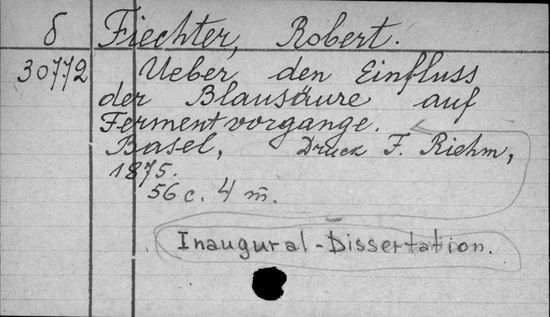 б Fiechter, Robert.
30772 Ueber den Einfluss
der Blausäure auf
Fermentvorgange.
Basel, Druck F. Riehm,
1875.
56 c. 4 m̄.
Inaugural-Dissertation.